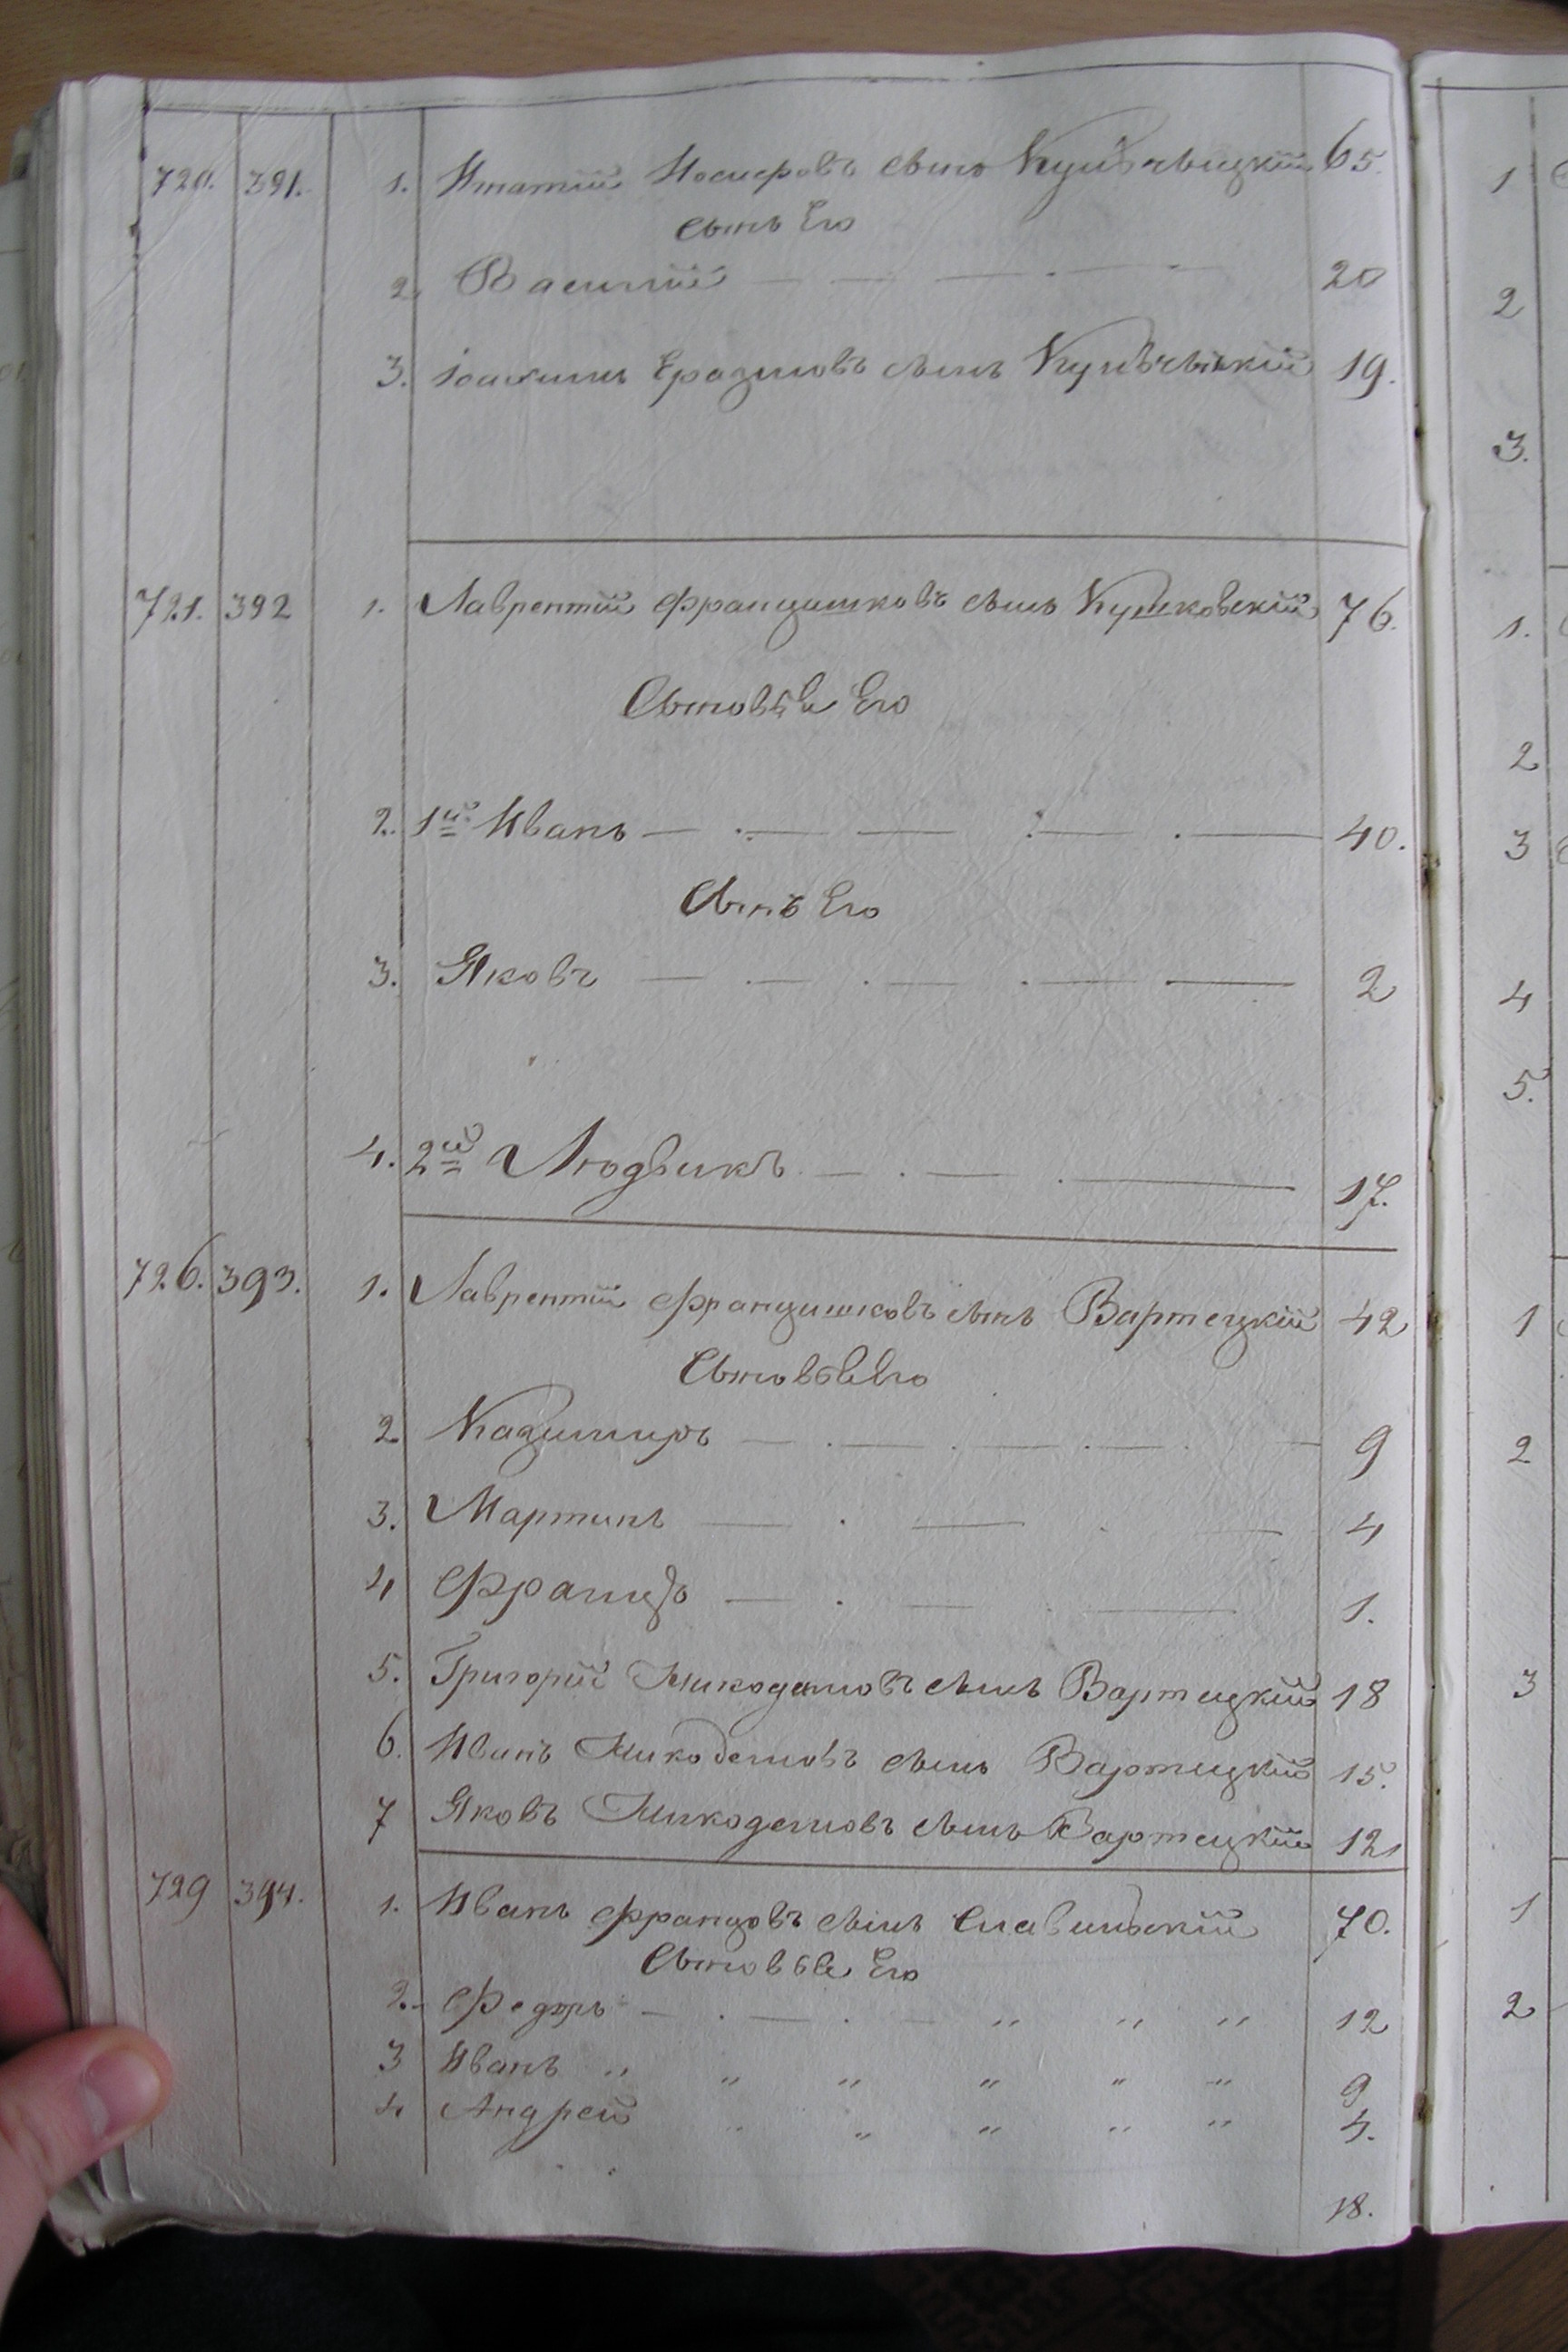 720. 391. 1. Игнатій Іосифовъ сынъ 65.
сынъ Его
2. Василій 20
3. Іоахимъ Еразмовъ сынъ 19.
721. 392 1. Лаврентій Францишковъ сынъ Кушковскій 76.
Сыновья Его
2. 1й Иванъ 40.
Сынъ Его
3. Яковъ 2
4. 2й Людвикъ 17.
726. 393. 1. Лаврентій Францишковъ сынъ Вартецкій 42
Сыновья Его
2 Казимиръ 9
3. Мартинъ 4
4 Францъ 1.
5. Григорій Никодемовъ сынъ Вартецкій 18
6. Иванъ Никодемовъ сынъ Вартецкій 15.
7 Яковъ Никодемовъ сынъ Вартецкій 12
729 394. 1. Иванъ Францовъ сынъ Славинскій 70.
Сыновья Его
2. Федоръ " " " 12
3 Иванъ " " " " " " 9
4 Андрей " " " " " 4.
18.
1
2
3.
1.
2
3
4
5.
1
2
3
1
2